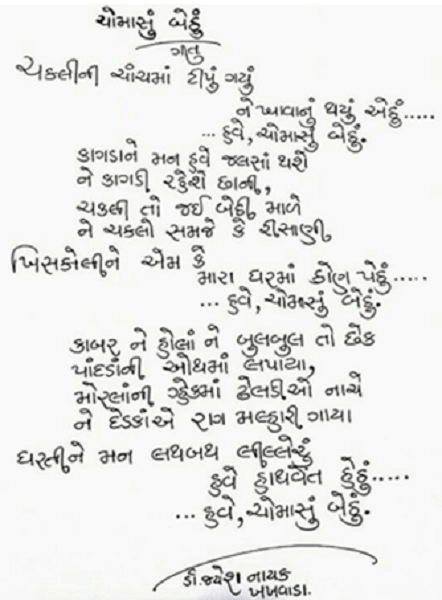 ચોમાસું બેઠું
ગીત
ચકલીની ચાંચમાં ટીપું ગયું
ને ખાવાનું થયું એઠું.....
... હુવે, ચોમાસું બેઠું.
કાગડાને મન હુવે જલસાં થશે
ને કાગડી રહેશે છાની,
ચકલી તો જઈ બેઠી માળે
ને ચકલો સમજે કે રીસાણી
ખિસકોલીને એમ કે
મારા ઘરમાં કોણ પેઠું.....
... હુવે, ચોમાસું બેઠું.
કાબર ને હોલાં ને બુલબુલ તો છેક
પાંદડાંની ઓથમાં લપાયા,
મોરલાંની ગ્હેકમાં ઢેલડીઓ નાચે
ને દેડકાંએ રાગ મલ્હારી ગાયા
ધરતીને મન લથબથ લીલ્લેરું
હુવે હાથવેંત હેઠું.....
... હુવે, ચોમાસું બેઠું.
ડૉ. જયેશ નાયક
ખખવાડા.